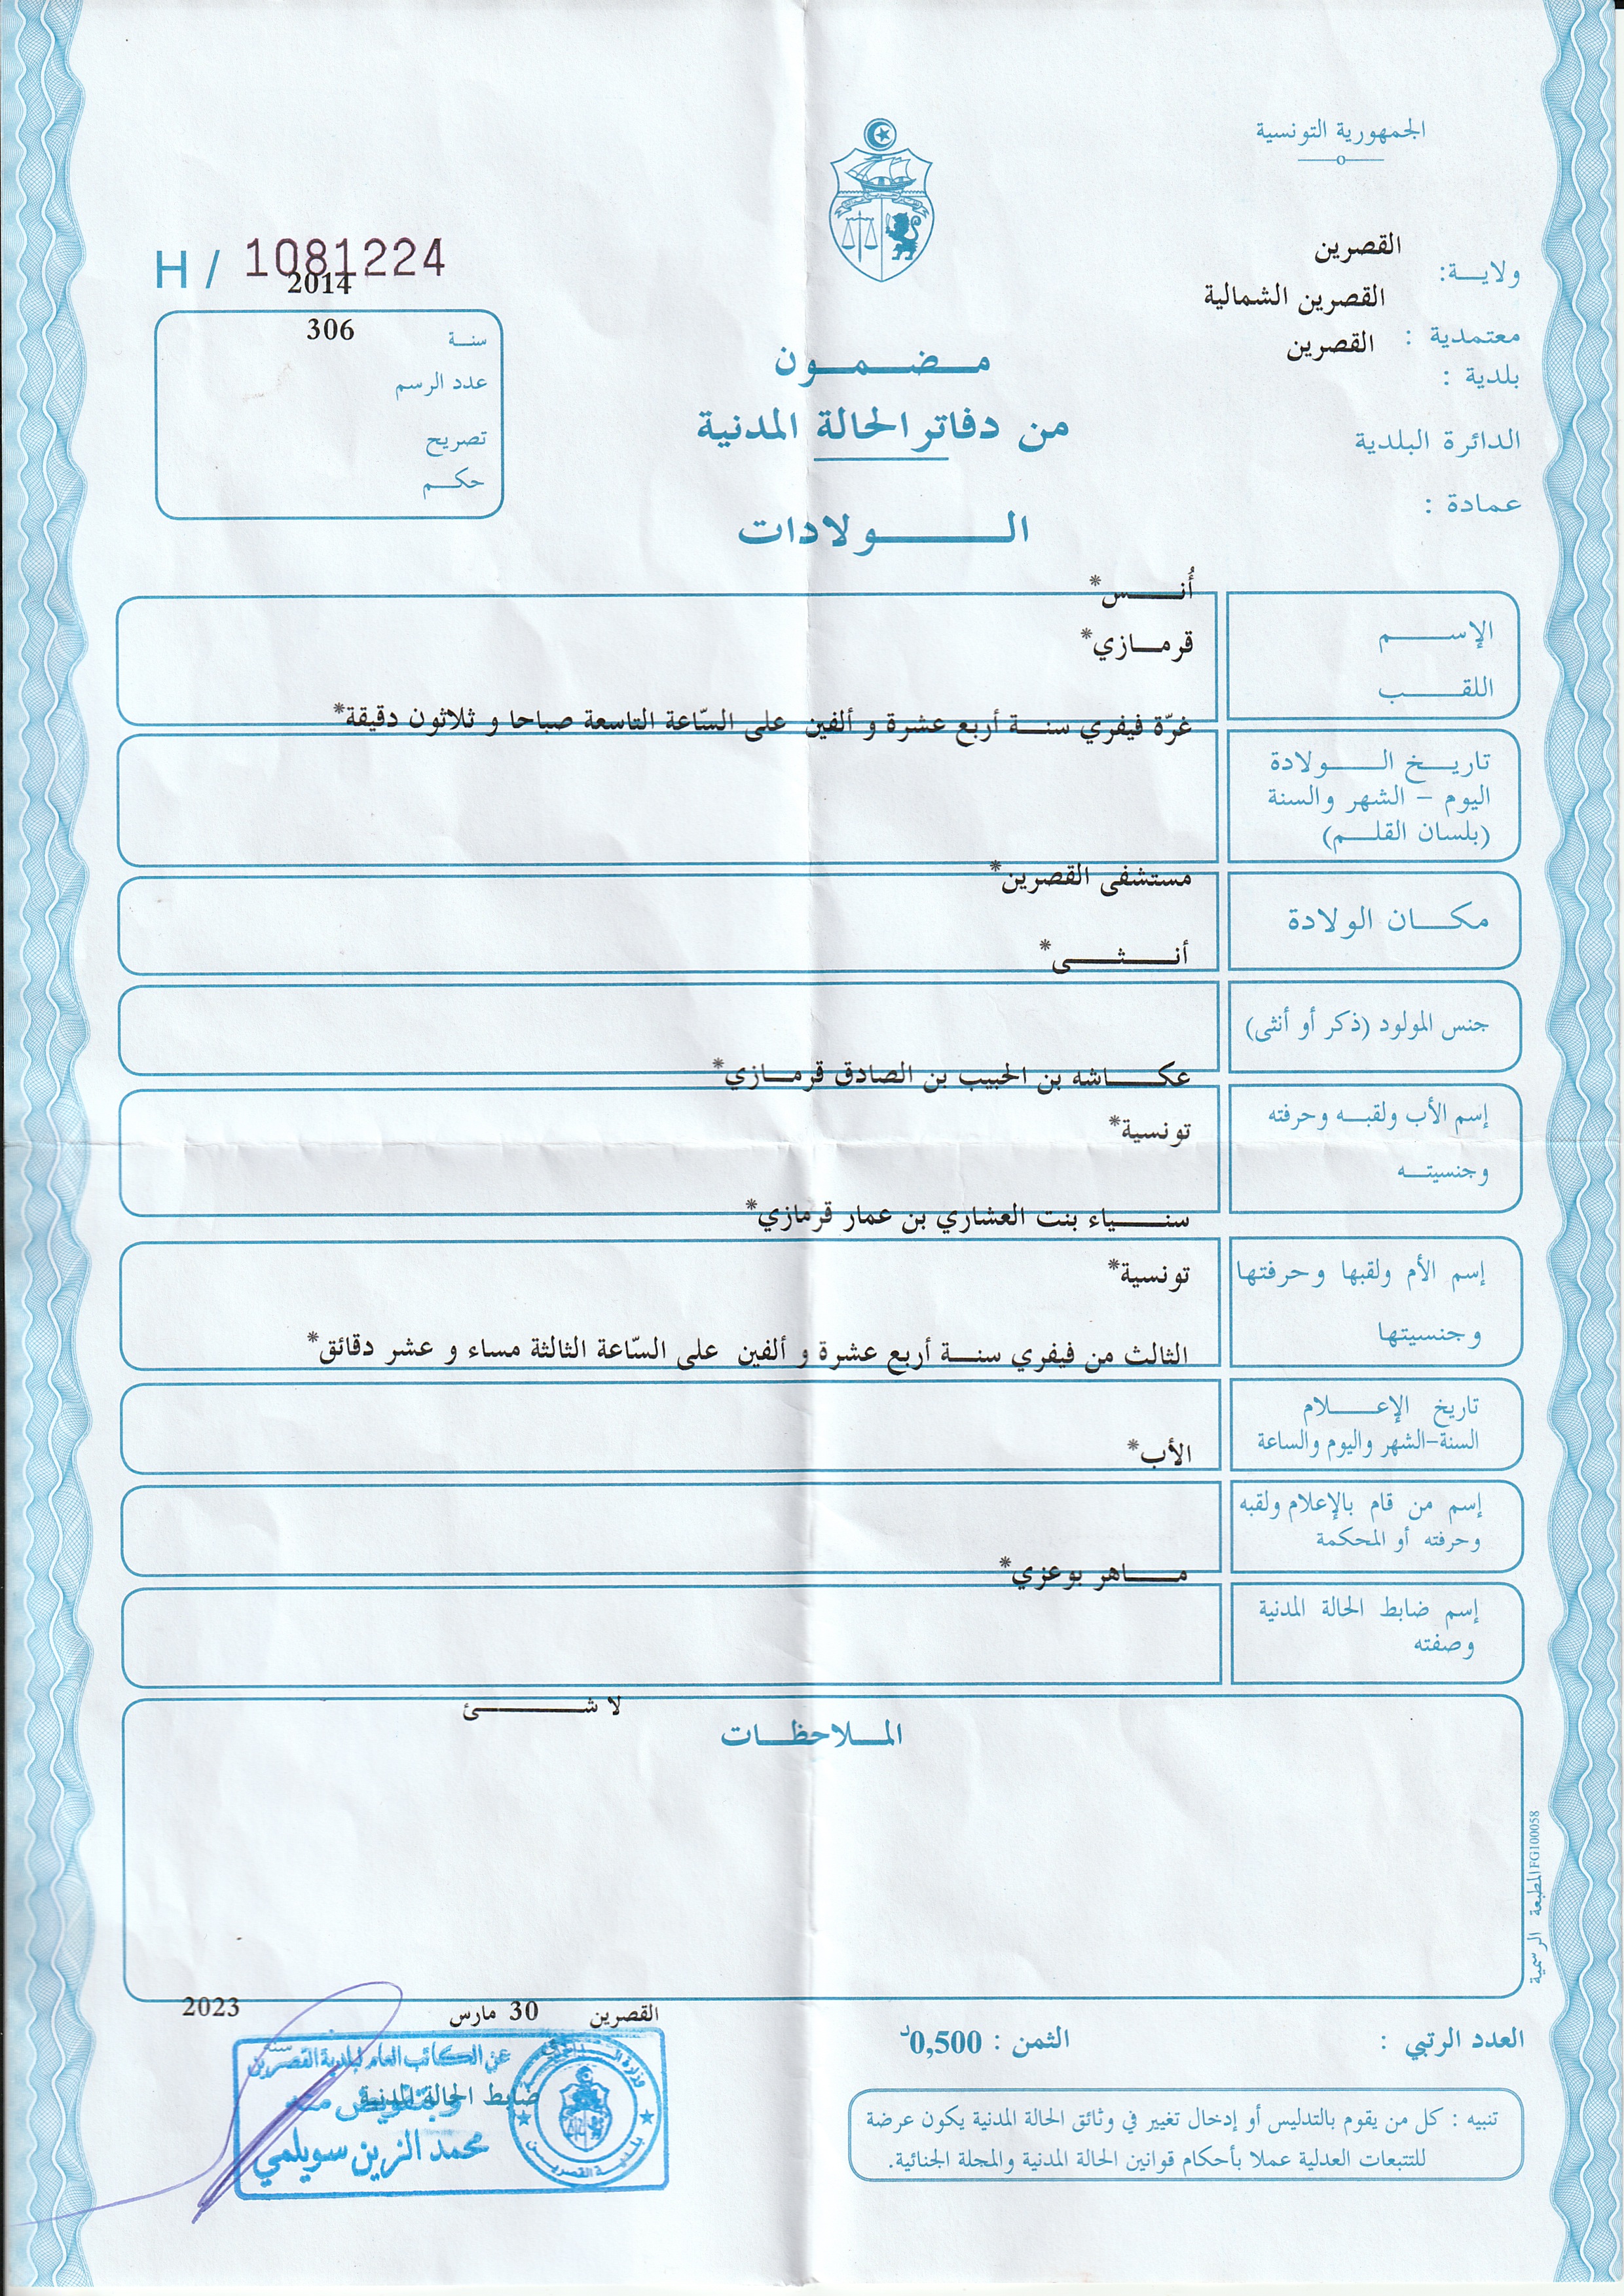 الجمهورية التونسية
ولايـــة: القصرين
معتمدية : القصرين الشمالية
بلدية : القصرين
الدائرة البلدية
عمادة :
H / 1081224
سنــة 2014
عدد الرسم 306
تصريح
حكــم
مـضـمـون
من دفاتر الحالة المدنية
الـــولادات
الإســـم أُنـــس*
اللقـــب قرمــازي*
تاريــخ الـــولادة غرّة فيفري سنــة أربع عشرة و ألفين على السّاعة التاسعة صباحا و ثلاثون دقيقة*
اليوم - الشهر والسنة
(بلسان القلــم)
مكــان الولادة مستشفى القصرين*
جنس المولود (ذكر أو أنثى) أنـــثـــى*
إسم الأب ولقبــه وحرفته عكـــاشه بن الحبيب بن الصادق قرمــازي*
وجنسيتــه تونسية*
إسم الأم ولقبها وحرفتها سنـــياء بنت العشاري بن عمار قرمازي*
وجنسيتها تونسية*
تاريخ الإعـــلام الثالث من فيفري سنــة أربع عشرة و ألفين على السّاعة الثالثة مساء و عشر دقائق*
السنة-الشهر واليوم والساعة
إسم من قام بالإعلام ولقبه الأب*
وحرفته أو المحكمة
إسم ضابط الحالة المدنية مـــاهر بوعزي*
وصفته
لا شـــئ
المــلاحظــات
المطبعة الرسمية FG100058
القصرين 30 مارس 2023
سنة
ضابط الحالة المدنية
عن الكاتب العام لبلدية القصرين
وبتفويض منه
محمد الزين سويلمي
بلديــة القصريــن
العدد الرتبي :
الثمن : 0,500د
تنبيه : كل من يقوم بالتدليس أو إدخال تغيير في وثائق الحالة المدنية يكون عرضة
للتتبعات العدلية عملا بأحكام قوانين الحالة المدنية والمجلة الجنائية.